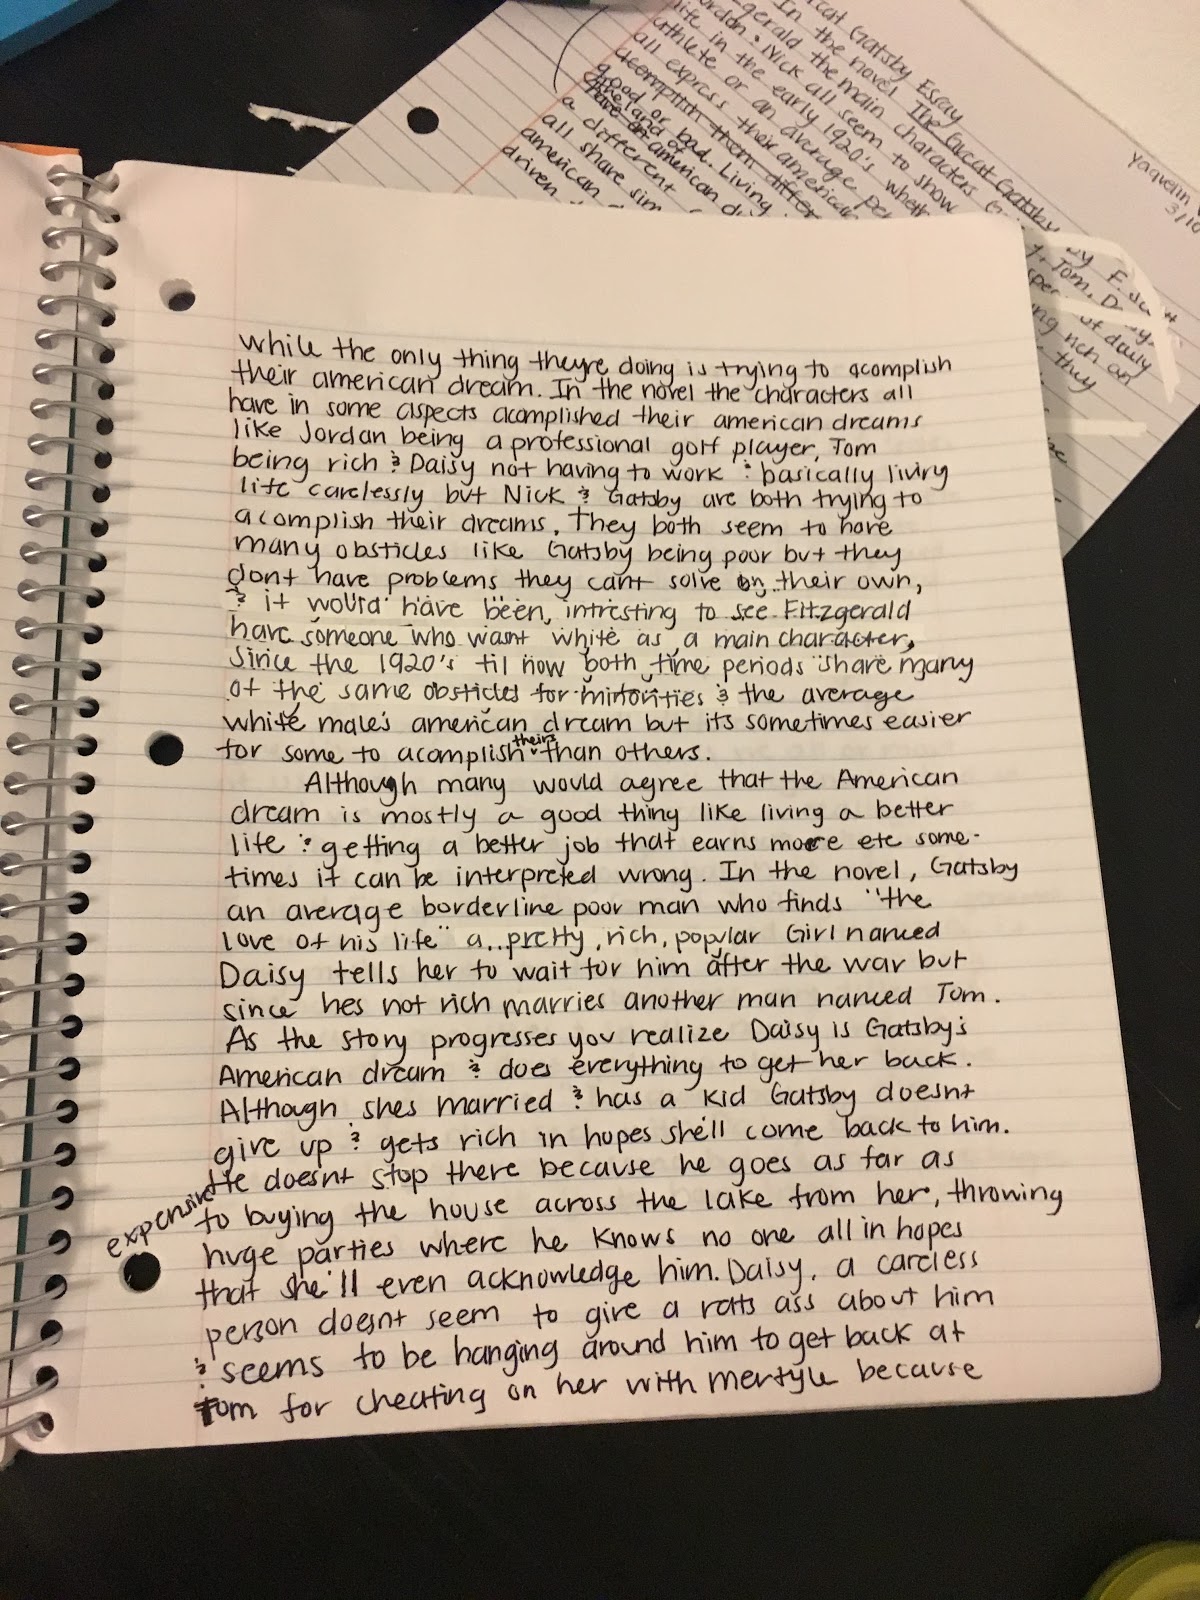 cat Gatsby Essay
In the novel The Great Gatsby by F. Scott
gerald the main characters
Jordan & Nick all seem to show
life in the early 1920's whether
athlete or an average per
all express their american
acomplish them differ
good or bad. Living
the land of
have an american dr
a different
all share sim
american
driven
Yaquelin
3/10
y, Tom, Daisy,
of daily
ng rich an
they
while the only thing theyre doing is trying to acomplish
their american dream. In the novel the characters all
have in some aspects acomplished their american dreams
like Jordan being a professional golf player, Tom
being rich & Daisy not having to work & basically living
life carelessly but Nick & Gatsby are both trying to
acomplish their dreams. They both seem to have
many obsticles like Gatsby being poor but they
dont have problems they cant solve on their own,
& it would have been intresting to see Fitzgerald
have someone who wasnt white as a main character,
since the 1920's til now both time periods share many
of the same obsticles for minorities & the average
white male's american dream but its sometimes easier
for some to acomplish theirs than others.
Although many would agree that the American
dream is mostly a good thing like living a better
life & getting a better job that earns more etc some-
times it can be interpreted wrong. In the novel, Gatsby
an average borderline poor man who finds "the
love of his life" a pretty, rich, popular Girl named
Daisy tells her to wait for him after the war but
since hes not rich marries another man named Tom.
As the story progresses you realize Daisy is Gatsby's
American dream & does everything to get her back.
Although shes married & has a kid Gatsby doesnt
give up & gets rich in hopes she'll come back to him.
He doesnt stop there because he goes as far as
to buying the house across the lake from her, throwing
expensive
huge parties where he knows no one all in hopes
that she'll even acknowledge him. Daisy, a careless
person doesnt seem to give a rats ass about him
& seems to be hanging around him to get back at
Tom for cheating on her with mertyle because